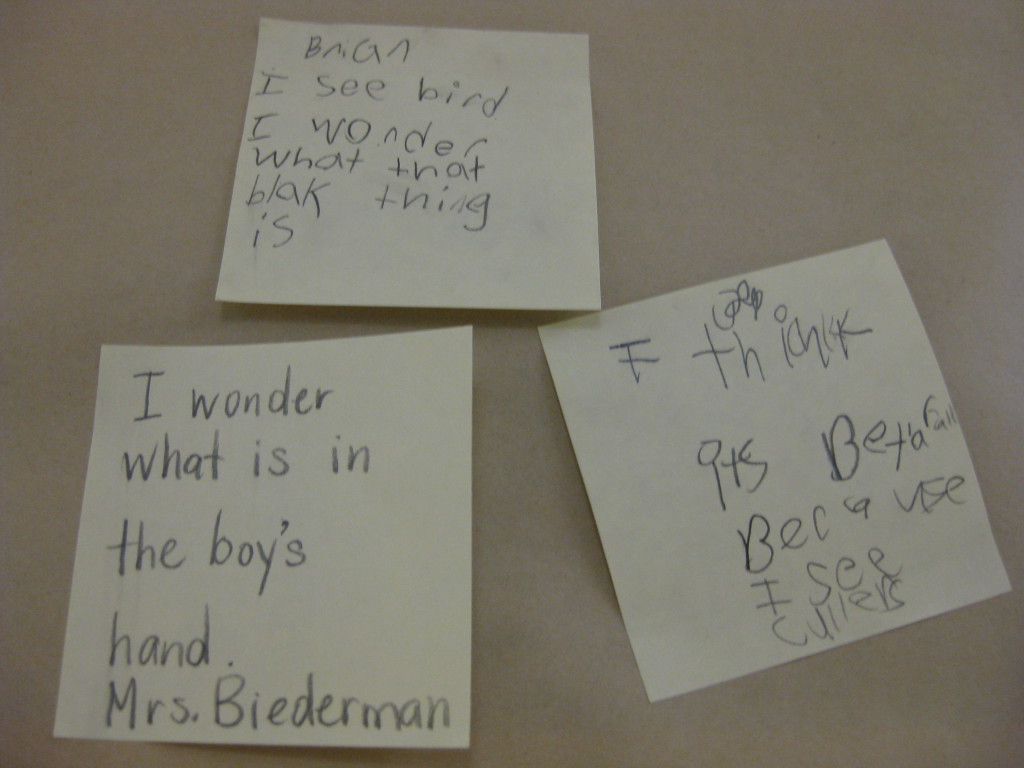 Brian
I see bird
I wonder
what that
blak thing
is
I wonder
what is in
the boy's
hand.
Mrs. Biederman
I think
its Betafall
Because
I see
cullers